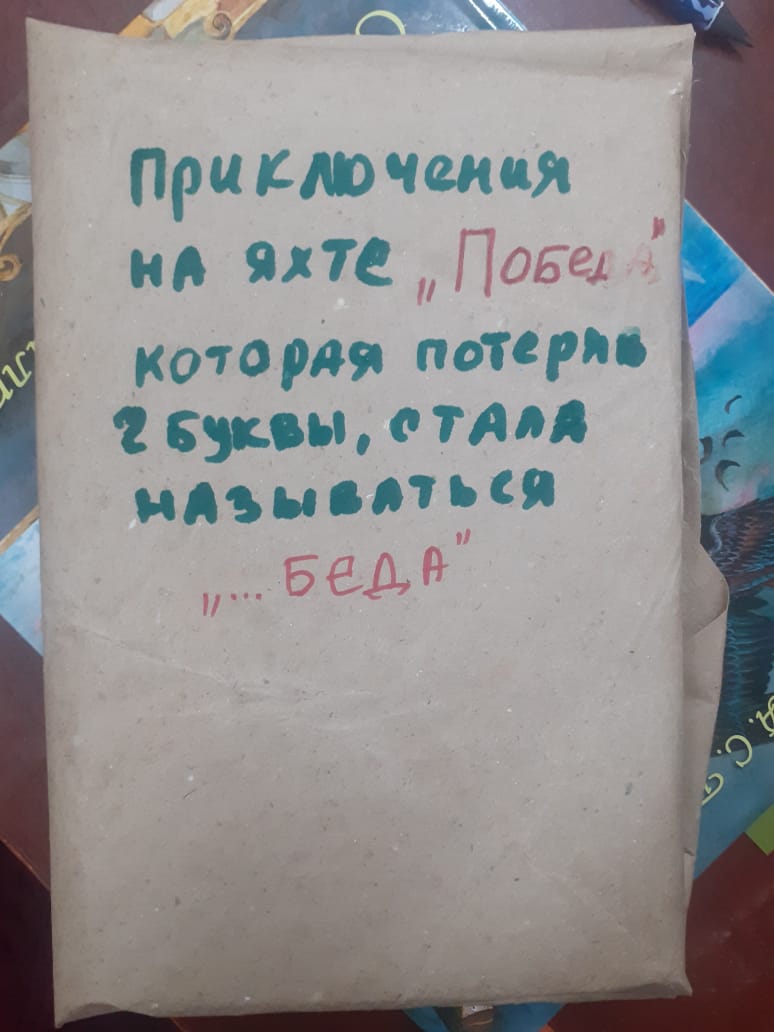 Приключения
на яхте „Победа"
которая потеряв
2 буквы, стала
называться
„... беда"